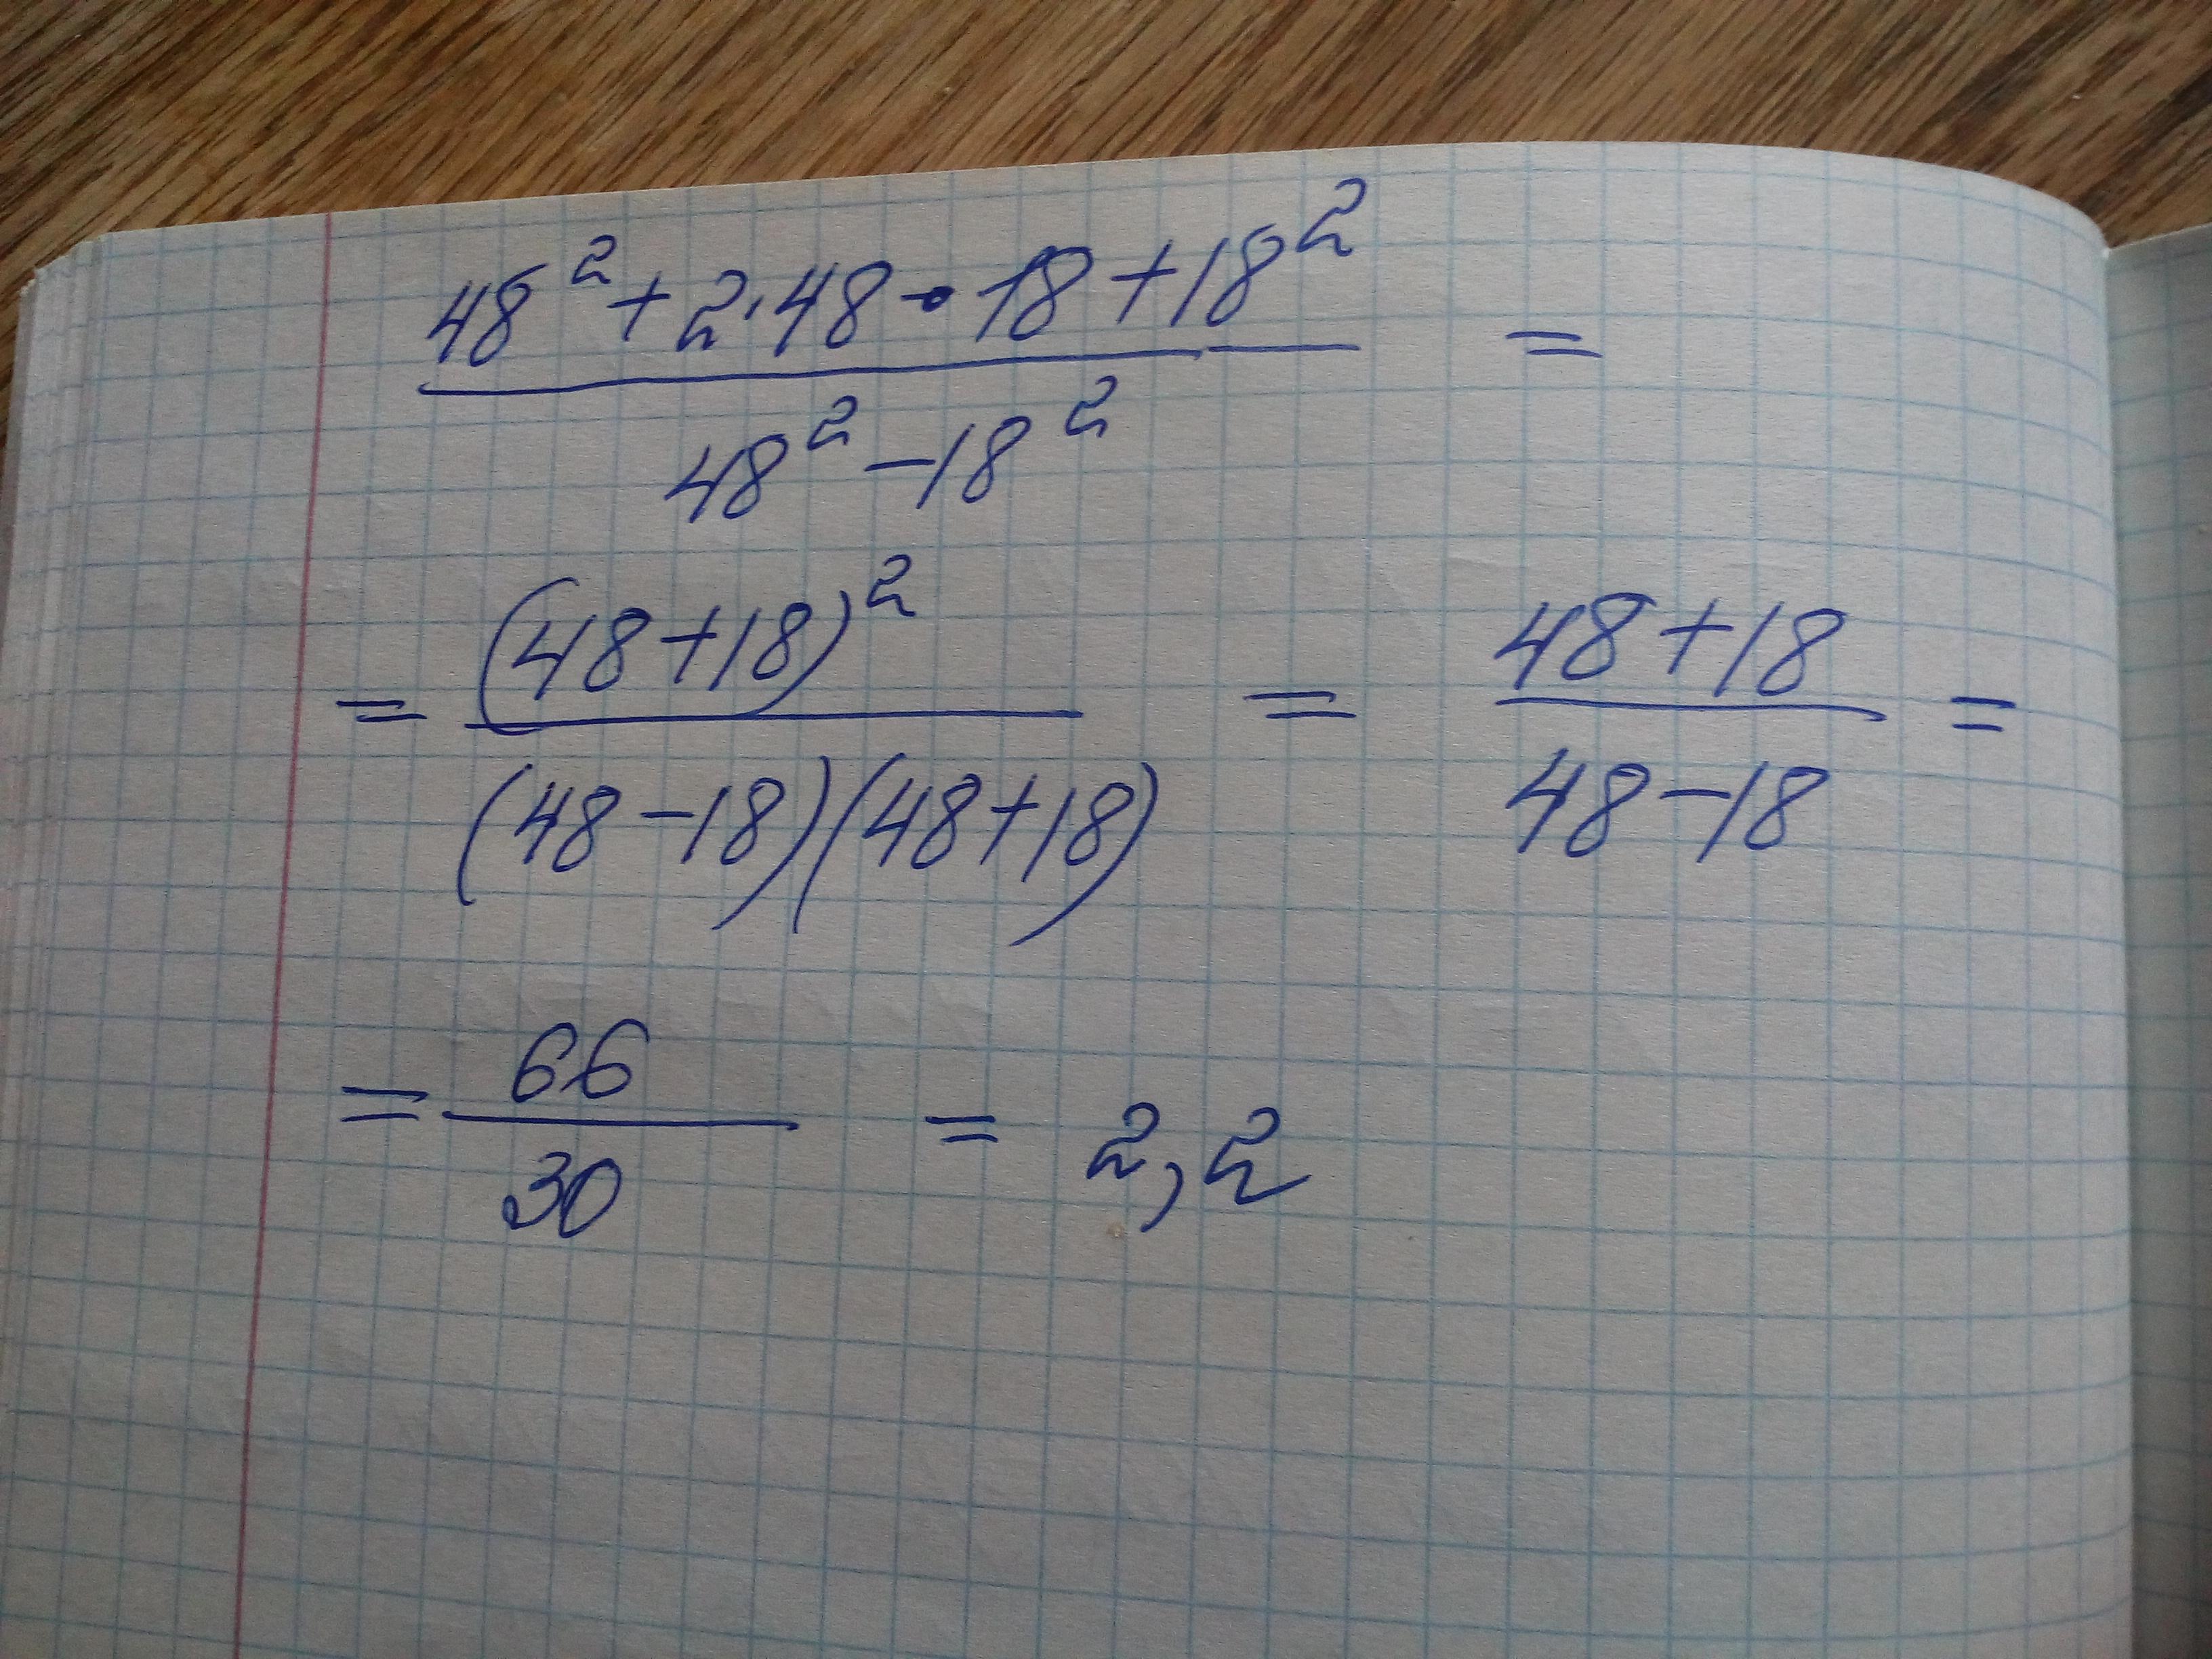 48² + 2·48·18 + 18² =
48² − 18²
= (48+18)² = 48+18 =
(48−18)(48+18) 48−18
= 66 = 2,2
30